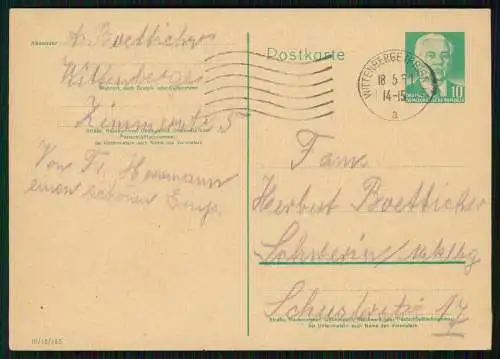 Absender: A. Boetticher
Wittenberge
Wohnort, auch Zustell- oder Leitpostamt
Zimmerstr. 5
Straße, Hausnummer, Gebäudeteil, Stockwerk oder
Postschließfachnummer;
bei Untermietern auch Name des Vermieters
Von Fr. Hermann
einen schönen Gruß.
III/18/185
Postkarte
WITTENBERGE
14-15
a
DEUTSCHE
DEMOKRATISCHE REPUBLIK
10
Fam.
Herbert Boetticher
Schwerin Meklbg
17
Straße, Hausnummer, Gebäudeteil, Stockwerk oder Postschließfachnummer;
bei Untermietern auch Name des Vermieters